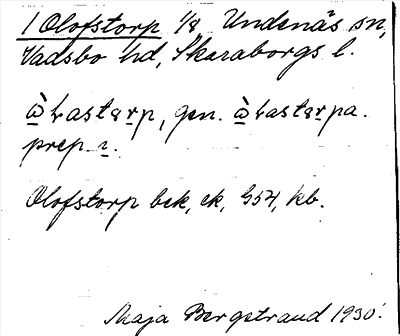 1 Olofstorp 1/8 Undenäs sn,
Vadsbo hd, Skaraborgs l.
gen.
prep. ɪ.
Olofstorp bek, ek, G54, kb.
Maja Bergstrand 1930.